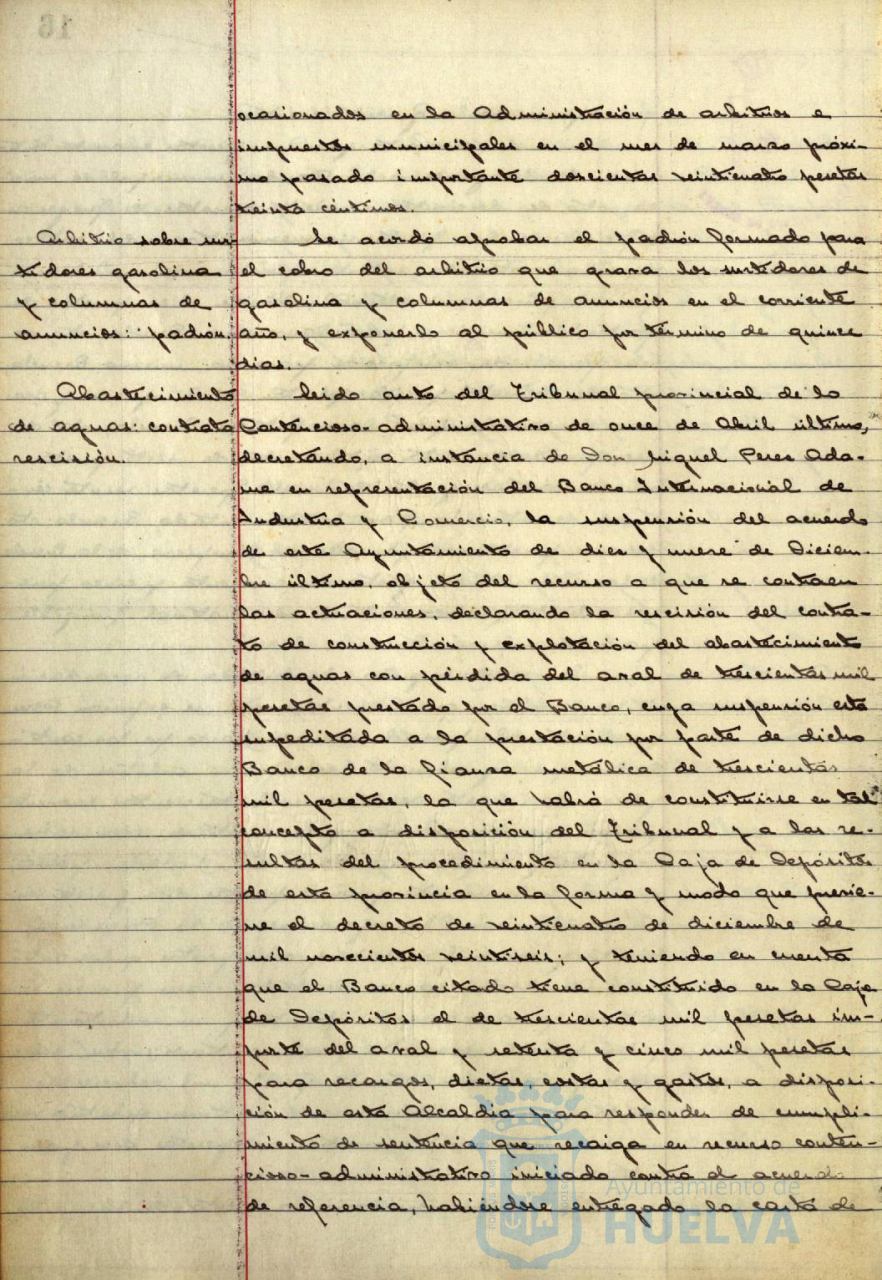 16
ocasionados en la Administración de arbitrios e
impuestos municipales en el mes de marzo próxi-
mo pasado importante doscientas veinticuatro pesetas
treinta céntimos.
Arbitrio sobre sur-
tidores gasolina
y columnas de
anuncios: padrón.
Se acordó aprobar el padrón formado para
el cobro del arbitrio que grava los surtidores de
gasolina y columnas de anuncios en el corriente
año, y exponerlo al público por término de quince
dias.
Abastecimiento
de aguas: contrata
rescisión.
Leido auto del Tribunal provincial de lo
Contencioso-administrativo de once de Abril último,
decretando, a instancia de Don Miguel Perez Ada-
me en representación del Banco Internacional de
Industria y Comercio, la suspensión del acuerdo
de este Ayuntamiento de diez y nueve de Diciem-
bre último, objeto del recurso a que se contraen
las actuaciones, declarando la rescisión del contra-
to de construcción y explotación del abastecimiento
de aguas con pérdida del aval de trescientas mil
pesetas prestado por el Banco, cuya suspensión está
supeditada a la prestación por parte de dicho
Banco de la fianza metálica de trescientas
mil pesetas, la que habrá de constituirse en tal
concepto a disposición del Tribunal y a las re-
sultas del procedimiento en la Caja de Depósitos
de esta provincia en la forma y modo que previe-
ne el decreto de veinticuatro de diciembre de
mil novecientos veintiseis; y teniendo en cuenta
que el Banco citado tiene constituido en la Caja
de Depósitos el de trescientas mil pesetas im-
porte del aval y setenta y cinco mil pesetas
para recargos, dietas, costas y gastos, a disposi-
ción de esta Alcaldía para responder de cumpli-
miento de sentencia que recaiga en recurso conten-
cioso-administrativo iniciado contra el acuerdo
de referencia, habiéndose entregado la carta de
Ayuntamiento de
HUELVA